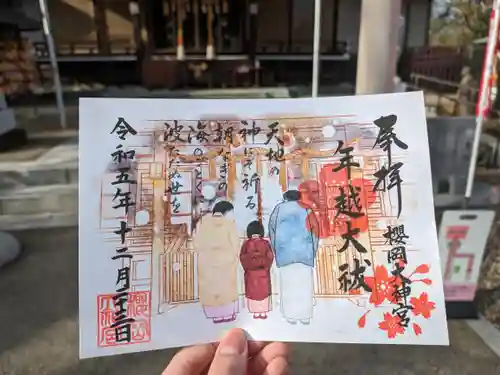 奉拝
櫻岡大神宮
年越大祓
天地の
神にぞ祈る
朝なぎの
海のごとくに
波たたぬ世を
令和五年十二月二十三日